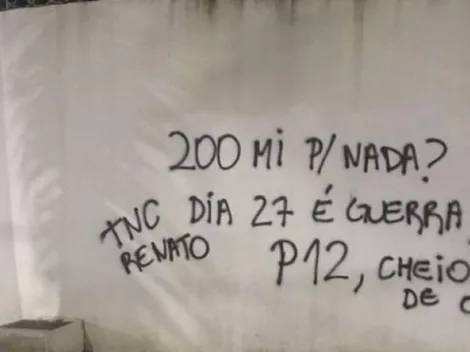 200 Mi P/ NADA?
TNC DIA 27 É GUERRA
RENATO P12, CHEIO
DE